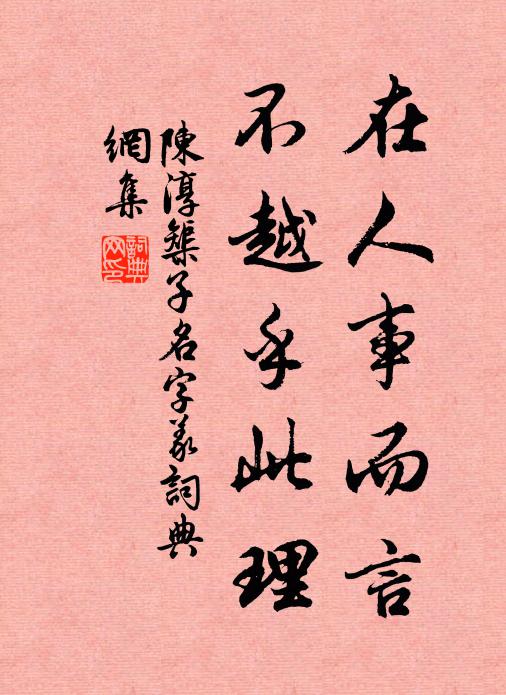 在人事而言
不越乎此理
陳淳築子名字義詞典
網集
詞典
網印